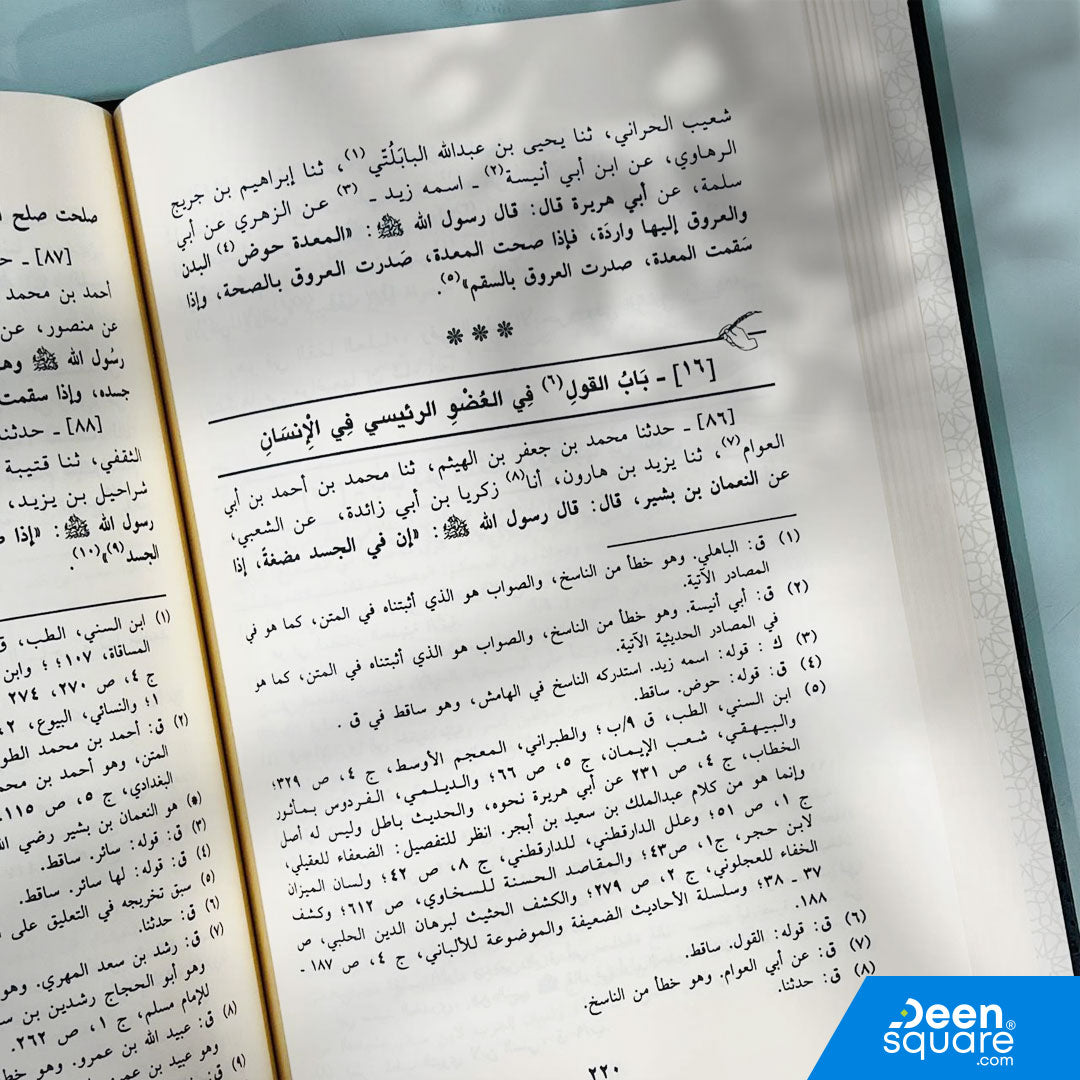 شعيب الحراني، ثنا يحيى بن عبدالله البابَلُتّي(١)، ثنا إبراهيم بن جريج
الرهاوي، عن ابن أبي أنيسة(٢) ـ اسمه زيد ـ(٣) عن الزهري عن أبي
سلمة، عن أبي هريرة قال: قال رسول الله ﷺ: «المعدة حوض(٤) البدن
والعروق إليها واردَة، فإذا صحت المعدة، صَدرت العروق بالصحة، وإذا
سَقمت المعدة، صدرت العروق بالسقم»(٥).
❋ ❋ ❋
[١٦] ـ بَابُ القولِ(٦) فِي العُضْوِ الرئيسي فِي الْإنْسَانِ
[٨٦] ـ حدثنا محمد بن جعفر بن الهيثم، ثنا محمد بن أحمد بن أبي
العوام(٧)، ثنا يزيد بن هارون، أنا(٨) زكريا بن أبي زائدة، عن الشعبي،
عن النعمان بن بشير، قال: قال رسول الله ﷺ: «إن في الجسد مضغةً، إذا
(١) ق: الباهلي. وهو خطأ من الناسخ، والصواب هو الذي أثبتناه في المتن، كما هو في
المصادر الآتية.
(٢) ق: أبي أنيسة. وهو خطأ من الناسخ، والصواب هو الذي أثبتناه في المتن، كما هو
في المصادر الحديثية الآتية.
(٣) ك: قوله: اسمه زيد. استدركه الناسخ في الهامش، وهو ساقط في ق.
(٤) ق: قوله: حوض. ساقط.
(٥) ابن السني، الطب، ق ٩/ب؛ والطبراني، المعجم الأوسط، ج ٤، ص ٣٢٩؛
والبيهقي، شعب الإيمان، ج ٥، ص ٦٦؛ والديلمي، الفردوس بمأثور
الخطاب، ج ٤، ص ٢٣١ عن أبي هريرة نحوه، والحديث باطل وليس له أصل
وإنما هو من كلام عبدالملك بن سعيد بن أبجر. انظر للتفصيل: الضعفاء للعقيلي،
ج ١، ص ٥١؛ وعلل الدارقطني، للدارقطني، ج ٨، ص ٤٢؛ ولسان الميزان
لابن حجر، ج١، ص٤٣؛ والمقاصد الحسنة للسخاوي، ص ٦١٢؛ وكشف
الخفاء للعجلوني، ج ٢، ص ٢٧٩؛ والكشف الحثيث لبرهان الدين الحلبي، ص
٣٧ ـ ٣٨؛ وسلسلة الأحاديث الضعيفة والموضوعة للألباني، ج ٤، ص ١٨٧ ـ
١٨٨.
(٦) ق: قوله: القول. ساقط.
(٧) ق: عن أبي العوام. وهو خطأ من الناسخ.
(٨) ق: حدثنا.
٢٢٠
صلحت صلح
[٨٧] ـ
أحمد بن محمد
عن منصور، عن
رسُول الله ﷺ
جسده، وإذا سقمت
[٨٨] ـ حدثنا
الثقفي، ثنا قتيبة
شراحيل بن يزيد،
رسول الله ﷺ: «إذا
الجسد(٩)»(١٠).
(١) ابن السني، الطب، ق
المساقاة، ١٠٧؛ وابن
ج ٤، ص ٢٧٠، ٢٧٤
١؛ والنسائي، البيوع، ٢،
(٢) ق: أحمد بن محمد
المتن، وهو أحمد بن
البغدادي، ج ٥، ص ١١٥.
(*) هو النعمان بن بشير رضي
(٣) ق: قوله: سائر. ساقط.
(٤) ق: قوله: لها سائر. ساقط.
(٥) سبق تخريجه في التعليق على
(٦) ق: حدثنا.
(٧) ق: رشد بن سعد المهري. وهو
وهو أبو الحجاج رشدين بن
للإمام مسلم، ج ١، ص ٢٦٢.
(٨) ق: عبيد الله بن عمرو. وهو
وهو عبيد بن
(٩) ق:
Deen
square®
.com